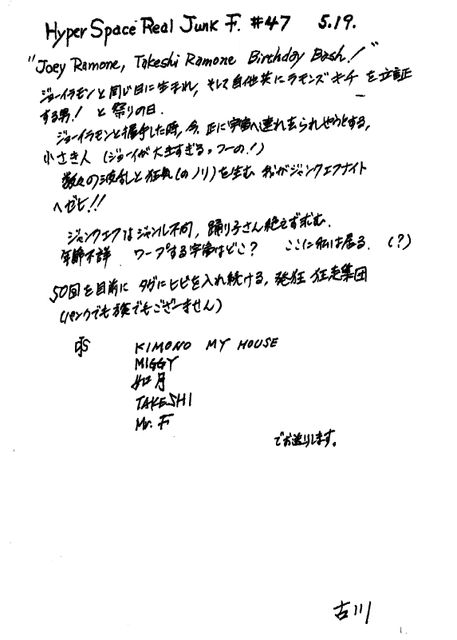 Hyper Space Real Junk F. #47 5.19.
"Joey Ramone, Takeshi Ramone Birthday Bash!"
ジョーイラモンと同じ日に生まれ, そして自他共にラモンズキチを立証
する男! と祭りの日.
ジョーイラモンと握手した時, 今, 正に宇宙へ連れ去られやうとする,
小さき人 (ジョーイが大きすぎるっつーの!)
数々の波乱と狂気(のノリ)を生む 我がジャンクエフナイト
へゼヒ!!
ジャンクエフはジャンル不問, 踊り子さん絶えず求む.
年齢不詳 ワープする宇宙はどこ? ここに私は居る. (?)
50回を目前に タガにヒビを入れ続ける, 発狂 狂走集団
(パンクでも族でもございません)
DJS KIMONO MY HOUSE
MIGGY
如月
TAKESHI
Mr. F
でお送りします.
古川